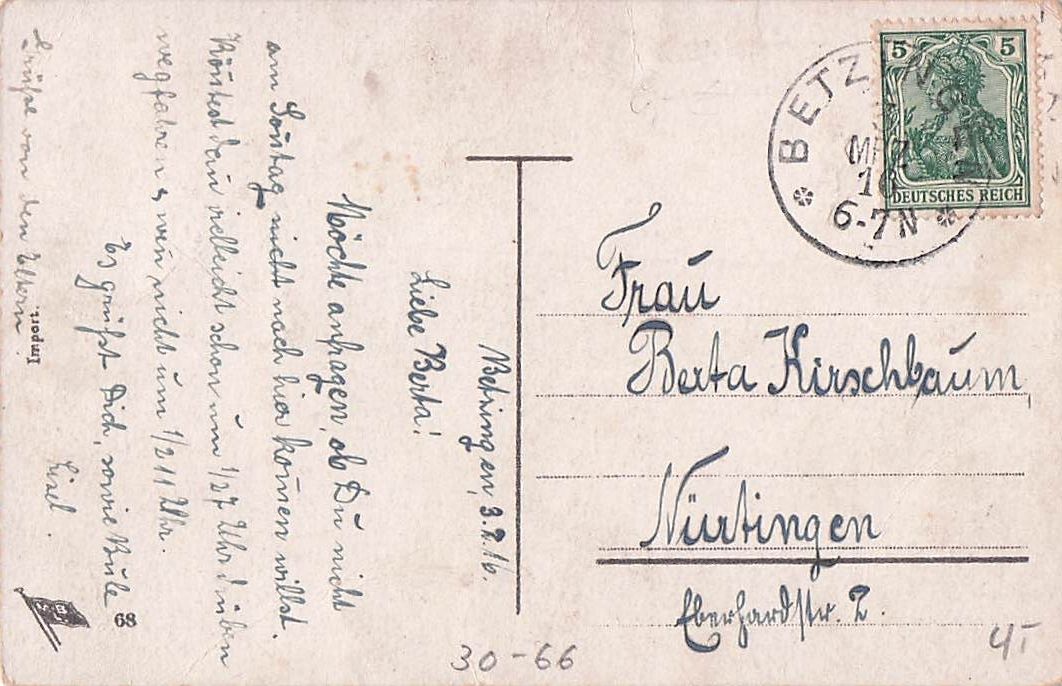 Betzingen, 3.2.16.
Liebe Berta!
Möchte anfragen, ob Du nicht
am Sontag nicht nach hier komen willst.
Köntest dan vielleicht schon um 1/2 7 Uhr drüben
wegfahren & wen nicht um 1/2 11 Uhr.
Es grüßt Dich, sowie
Liesel.
Grüße von den Eltern
Import.
68
BETZINGEN
MRZ
16
6-7N
5 5
DEUTSCHES REICH
Frau
Berta Kirschbaum
Nürtingen
Eberhardstr. 2.
30-66